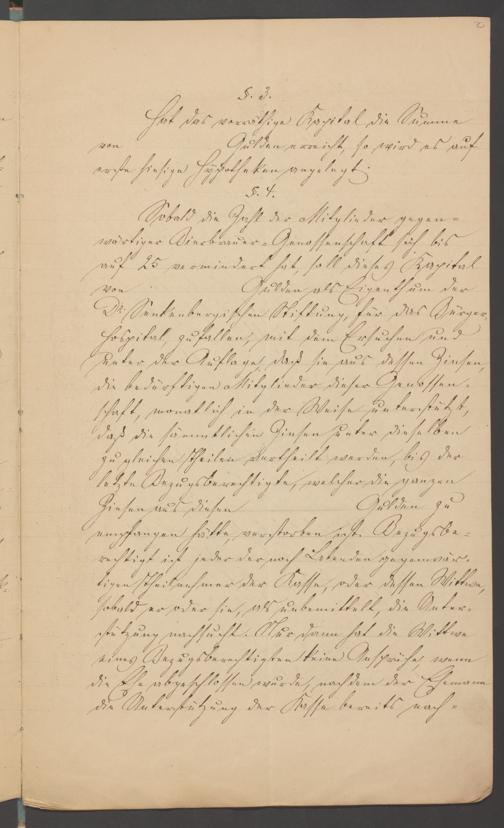 2
§. 3.
Hat das vorräthige Kapital die Summe
von Gulden erreicht, so wird es auf
erste hiesige Hypotheken angelegt.
§. 4.
Sobald die Zahl der Mitglieder gegen-
wärtiger Bierbrauer-Genossenschaft sich bis
auf 25 vermindert hat, soll dieses Kapital
von Gulden als Eigenthum der
Dr. Senkenbergischen Stiftung, für das Bürger-
hospital, zufallen, mit dem Ersuchen und
unter der Auflage, daß sie aus dessen Zinsen,
die bedürftigen Mitglieder dieser Genossen-
schaft, monatlich in der Weise unterstützt,
daß die sämmtlichen Zinsen unter dieselben
zu gleichen Theilen vertheilt werden, bis der
letzte Bezugsberechtigte, welcher die ganzen
Zinsen aus diesen Gulden zu
empfangen hätte, verstorben ist. Bezugsbe-
rechtigt ist jeder der noch Lebenden gegenwär-
tigen Theilnehmer der Kasse, oder dessen Wittwe,
sobald er oder sie, als unbemittelt, die Unter-
stützung nachsucht. Nur dann hat die Wittwe
eines Bezugsberechtigten keine Ansprüche wenn
die Ehe abgeschlossen wurde, nachdem der Ehemann
die Unterstützung der Kasse bereits nach-